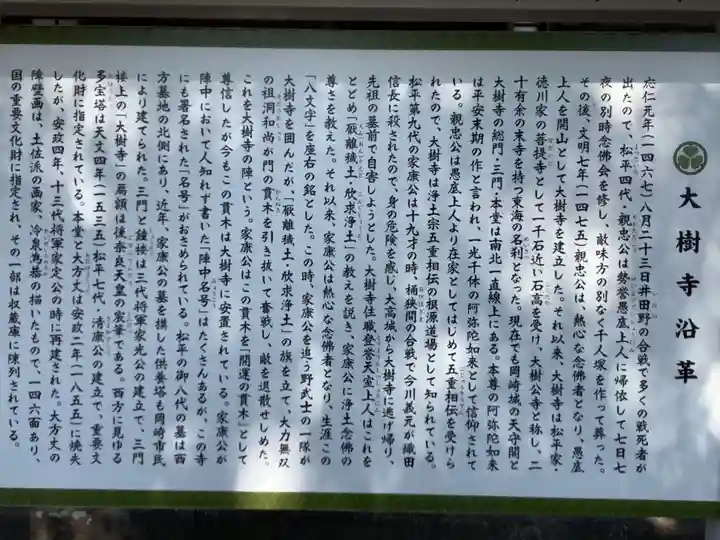 大樹寺沿革
応仁元年(一四六七)八月二十三日井田野の合戦で多くの戦死者が
出たので、松平四代・親忠公は勢誉愚底上人に帰依して七日七
夜の別時念佛会を修し、敵味方の別なく千人塚を作って葬った。
その後、文明七年(一四七五)親忠公は、熱心な念佛者となり、愚底
上人を開山として大樹寺を建立した。それ以来、大樹寺は松平家・
徳川家の菩提寺として一千石近い石高を受け、大樹公寺と称し、二
十有余の末寺を持つ東海の名刹となった。現在でも岡崎城の天守閣と
大樹寺の総門・三門・本堂は南北一直線上にある。本尊の阿弥陀如来
は平安末期の作と言われ、一光千体の阿弥陀如来として信仰されて
いる。親忠公は愚底上人より在家としてはじめて五重相伝を受けら
れたので、大樹寺は浄土宗五重相傳の根源道場として知られている。
松平第九代の家康公は十九才の時、桶狭間の合戦で今川義元が織田
信長に殺されたので、身の危険を感じ、大高城から大樹寺に逃げ帰り、
先祖の墓前で自害しようとした。大樹寺住職登誉天室上人はこれを
とどめ「厭離穢土・欣求浄土」の教えを説き、家康公に浄土念佛の
尊さを教えた。それ以来、家康公は熱心な念佛者となり、生涯この
「八文字」を座右の銘とした。この時、家康公を追う野武士の一隊が
大樹寺を囲んだが、「厭離穢土・欣求浄土」の旗を立て、大力無双
の祖洞和尚が門の貫木を引き抜いて奮戦し、敵を退散せしめた。
これを大樹寺の陣という。家康公はこの貫木を「開運の貫木」として
尊信したが今もこの貫木は大樹寺に安置されている。家康公が
陣中において人知れず書いた「陣中名号」はたくさんあるが、この寺
にも署名された「名号」がおさめられている。松平の御八代の墓は西
方墓地の北側にあり、近年、家康公の墓を模した供養塔も岡崎市民
により建てられた。三門と鐘楼は三代将軍家光公の建立で、三門
楼上の「大樹寺」の扁額は後奈良天皇の宸筆である。西方に見ゆる
多宝塔は天文四年(一五三五)松平七代・清康公の建立で、重要文
化財に指定されている。本堂と大方丈は安政二年(一八五五)に焼失
したが、安政四年、十三代将軍家定公の時に再建された。大方丈の
障壁画は、土佐派の画家、冷泉為恭の描いたもので、一四六面あり、
国の重要文化財に指定され、その一部は収蔵庫に陳列されている。